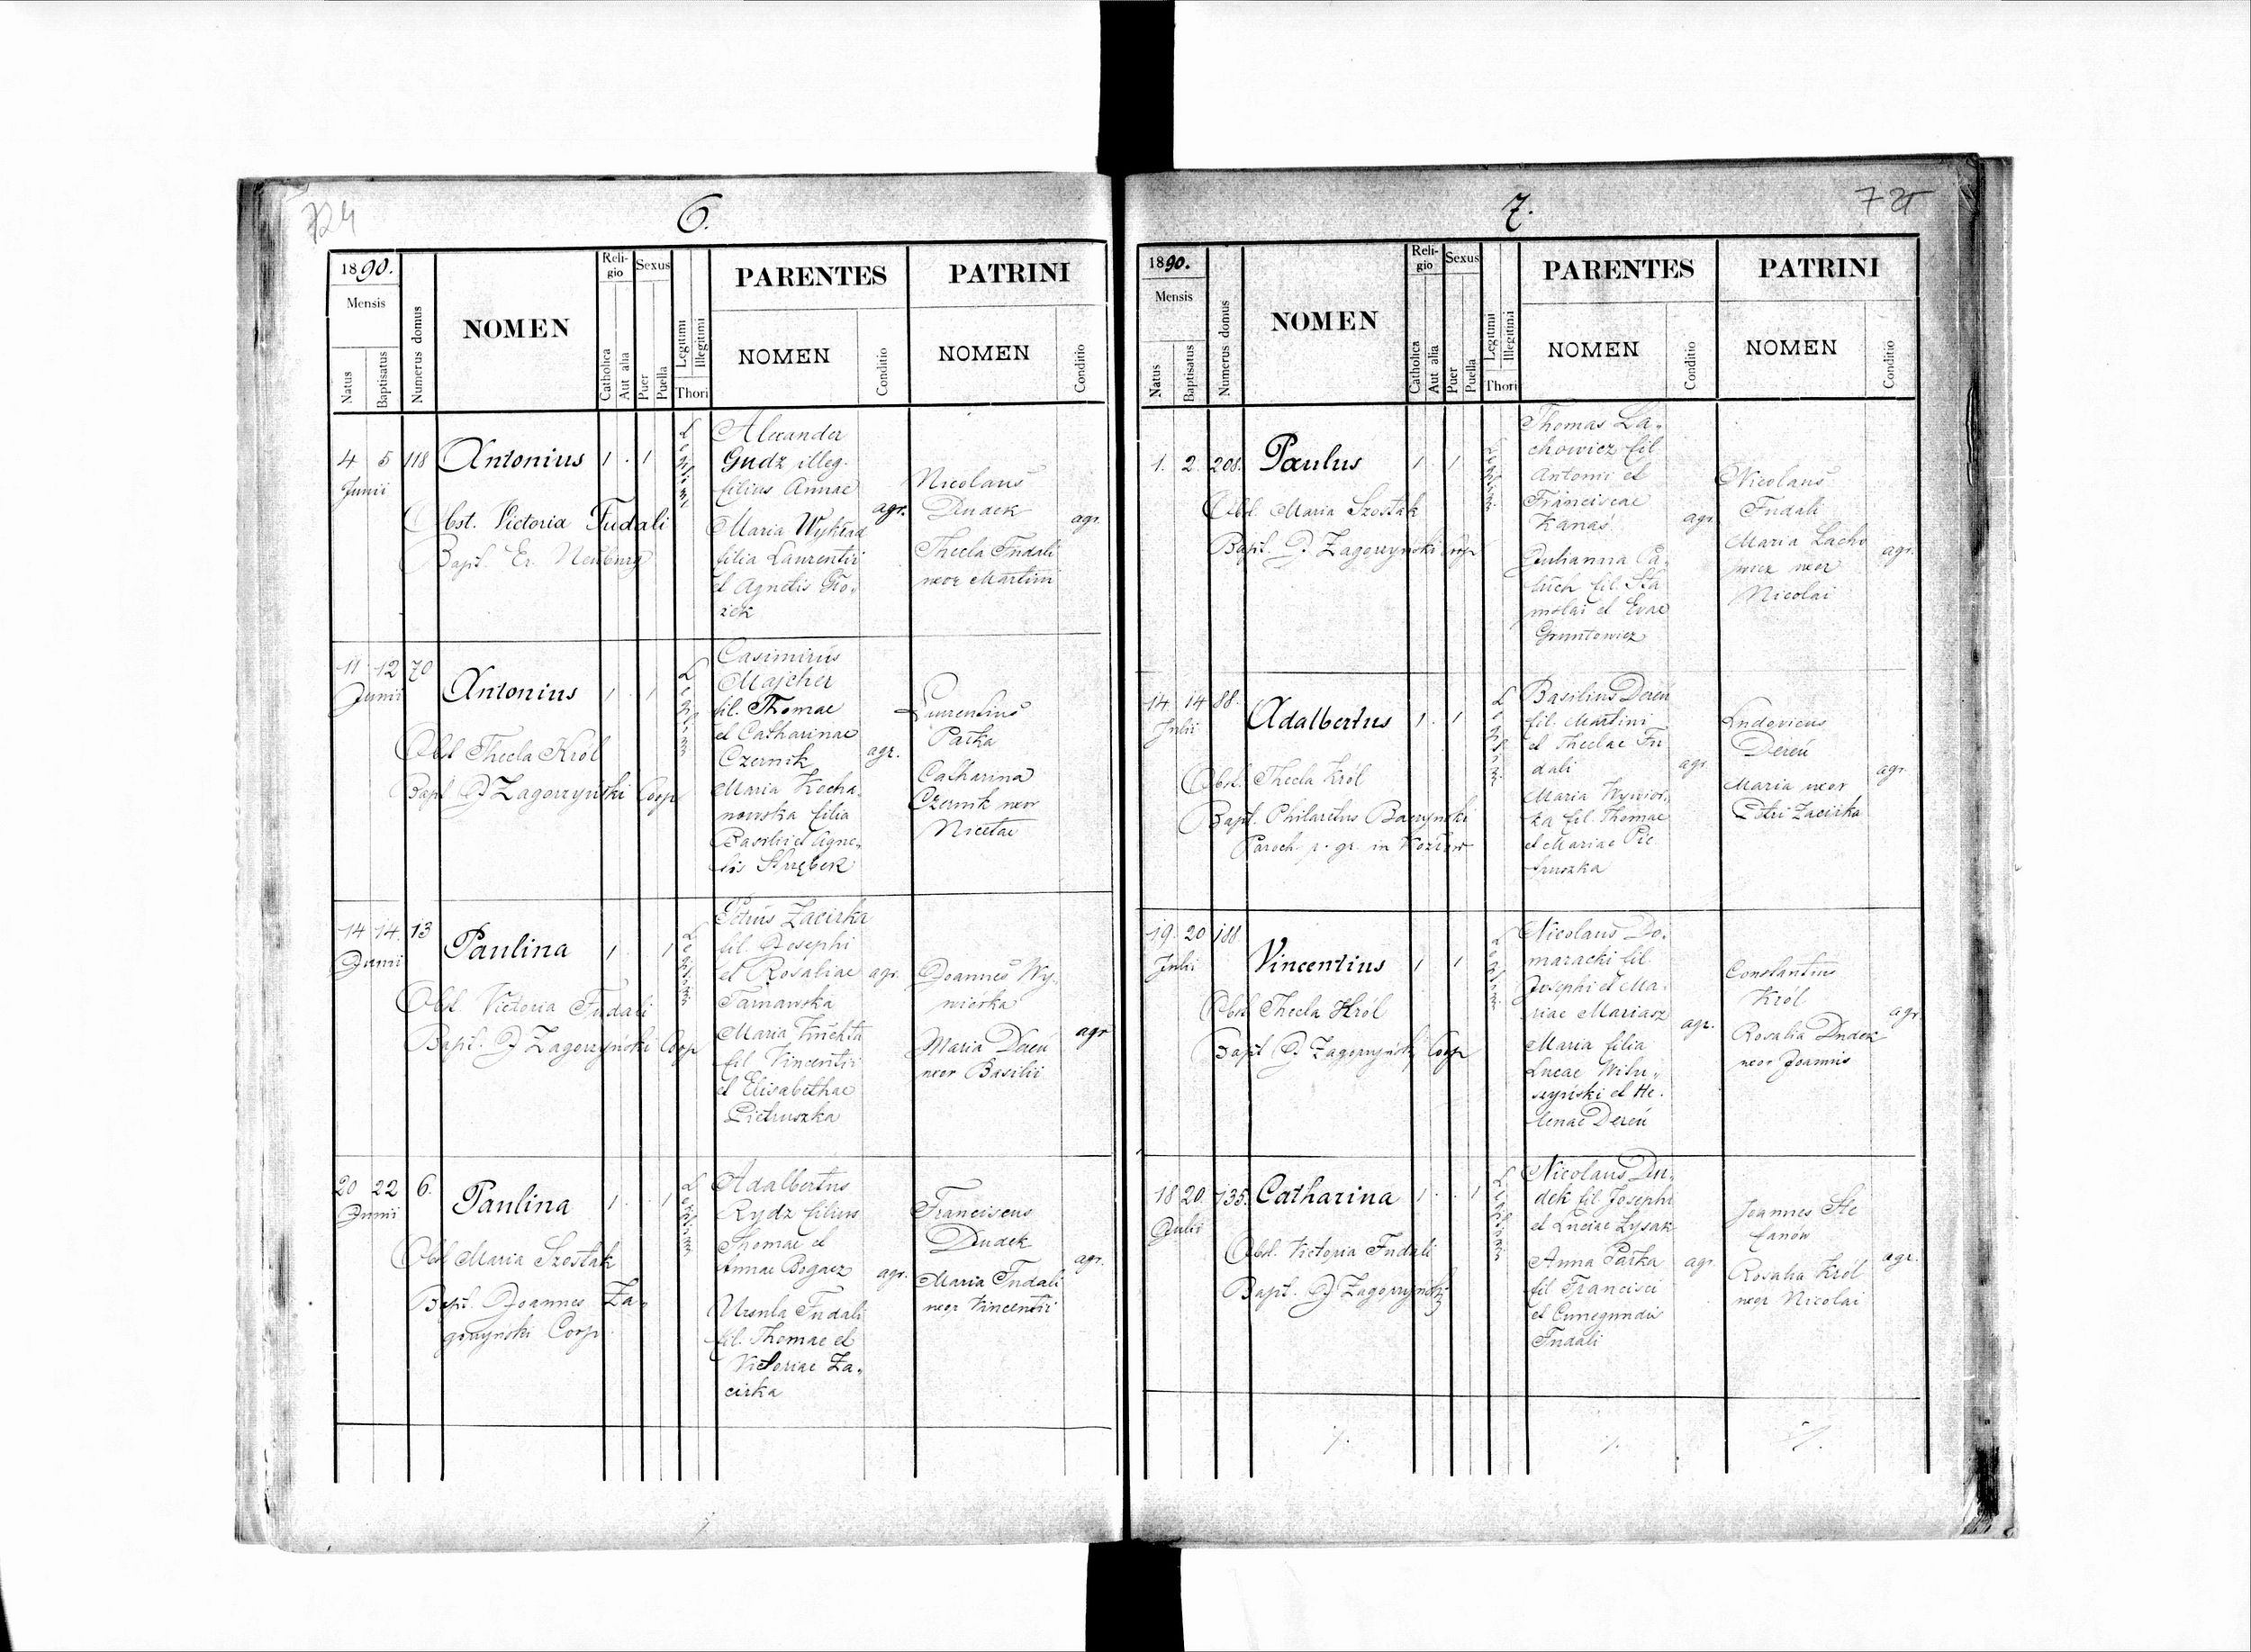 724
6.
1890.
Mensis
Natus
Baptisatus
Numerus domus
NOMEN
Reli-
gio
Catholica
Aut alia
Sexus
Puer
Puella
Legitimi
Illegitimi
Thori
PARENTES
NOMEN
Conditio
PATRINI
NOMEN
Conditio
4 5 118 Antonius 1 . 1
Junii
Obst. Victoria Fudali
Bapt. Er. Neuburg
Legitimi
Alexander
Gudz illeg.
filius Annae
Maria Wykład
filia Laurentii
et Agnetis
agr.
Nicolaus
Dudek
Thecla Fudali
uxor Martini
agr.
11 12 70
Junii
Antonius 1 . 1
Obst Thecla Król
Bapt J Zagorzyński Coop
Legitimi
Casimirus
Majcher
fil. Thomae
et Catharinae
Czernik
Maria Kocha-
nowska filia
Basilii et Agne-
tis
agr.
Laurentius
Patka
Catharina
Czernik uxor
Nicetae
14 14. 13
Junii
Paulina 1 . 1
Obst. Victoria Fudali
Bapt. J Zagorzyński Coop
Legitimi
Petrus Zacirka
fil Josephi
et Rosaliae
Tarnawska
Maria Kuchta
fil Vincentii
et Elisabethae
Pietruszka
agr.
Joannes Wy-
wiórka
Maria Dereń
uxor Basilii
agr
20 22 6.
Junii
Paulina 1 . . 1
Obst Maria Szostak
Bapt. Joannes Za-
gorzyński Coop
Legitimi
Adalbertus
Rydz filius
Thomae et
Annae Bogacz
Ursula Fudali
fil. Thomae et
Victoriae Za-
cirka
agr.
Franciscus
Dudek
Maria Fudali
uxor Vincentii
agr.
7.
725
1890.
Mensis
Natus
Baptisatus
Numerus domus
NOMEN
Reli-
gio
Catholica
Aut alia
Sexus
Puer
Puella
Legitimi
Illegitimi
Thori
PARENTES
NOMEN
Conditio
PATRINI
NOMEN
Conditio
1. 2. 208. Paulus 1 . 1
Obst. Maria Szostak
Bapt. J. Zagorzyński Coop
Legitimi
Thomas La-
chowicz fil
Antonii et
Franciscae
Kanas
Julianna Ca-
luch fil. Sta-
nislai et Evae
Gruntowicz
agr.
Nicolaus
Fudali
Maria Lacho
wicz uxor
Nicolai
agr.
14. 14 88.
Julii
Adalbertus 1 . 1
Obst. Thecla Król
Bapt. Philaretus Baczyński
Paroch. r. gr. in Kozłów
Legitimi
Basilius Dereń
fil. Martini
et Theclae Fu
dali
Maria Wywiór-
ka fil. Thomae
et Mariae Pie
truszka
agr.
Ludovicus
Dereń
Maria uxor
Petri Zacirka
agr.
19. 20 188
Julii
Vincentius 1 1
Obst Thecla Król
Bapt J. Zagorzyński Coop
Legitimi
Nicolaus Do-
maracki fil
Josephi et Ma-
riae Mariasz
Maria filia
Lucae Wilu-
szyński et He-
lenae Dereń
agr.
Constantius
Król
Rosalia Dudek
uxor Joannis
agr
18 20. 135. Catharina 1 . . 1
Julii
Obst. Victoria Fudali
Bapt. J Zagorzyński
Legitimi
Nicolaus Du-
dek fil Josephi
et Luciae Lysak
Anna Patka
fil Francisci
et Cunegundis
Fudali
agr.
Joannes Ste
fanów
Rosalia Król
uxor Nicolai
agr.